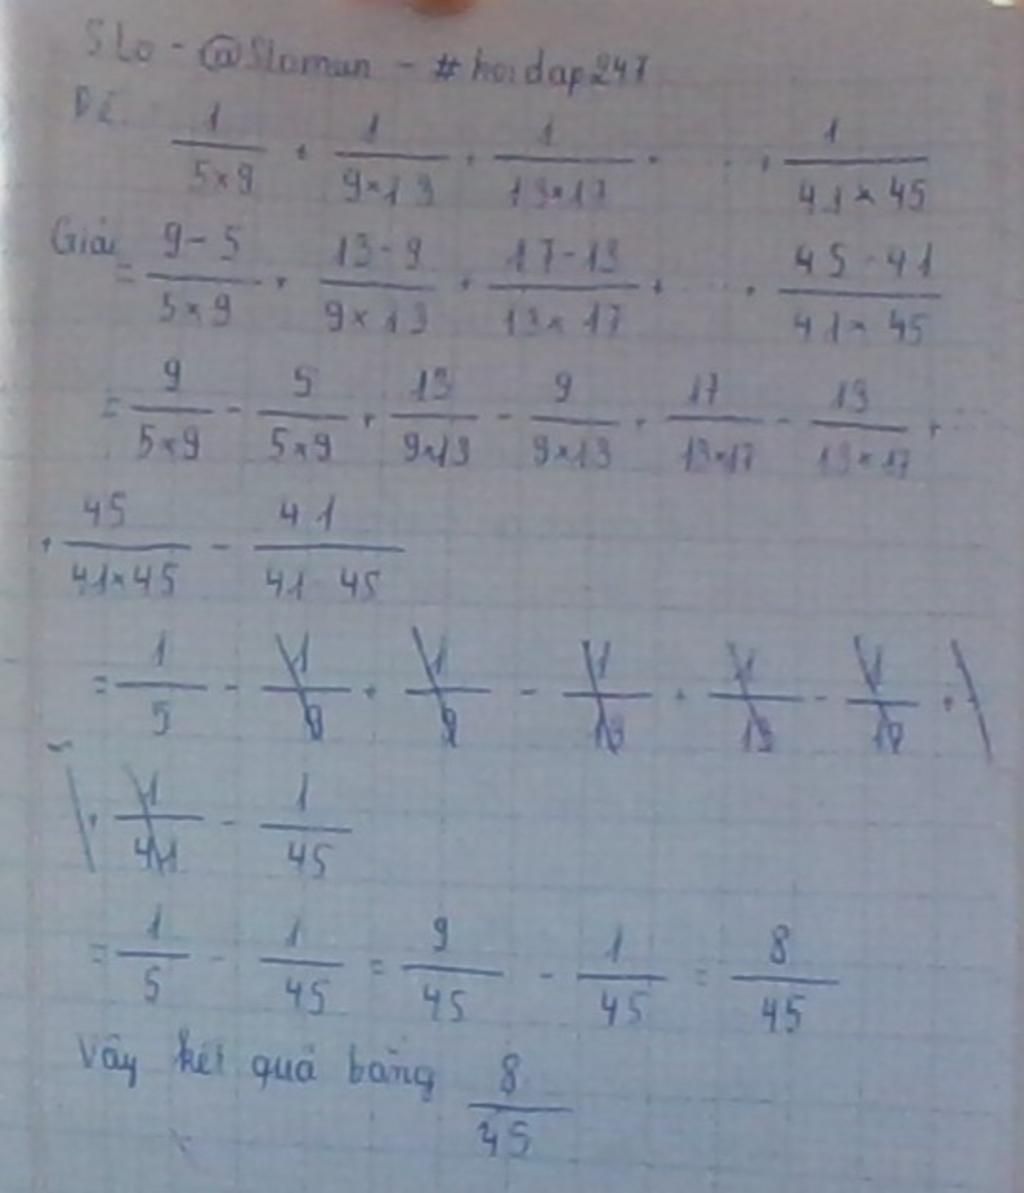 Slo - @Sloman - #hoidap247
Đề: 1/(5×9) + 1/(9×13) + 1/(13×17) + ... + 1/(41×45)
Giải
= (9-5)/(5×9) + (13-9)/(9×13) + (17-13)/(13×17) + ... + (45-41)/(41×45)
= 9/(5×9) - 5/(5×9) + 13/(9×13) - 9/(9×13) + 17/(13×17) - 13/(13×17) + ...
+ 45/(41×45) - 41/(41×45)
= 1/5 - 1/9 + 1/9 - 1/13 + 1/13 - 1/17 +
+ 1/41 - 1/45
= 1/5 - 1/45 = 9/45 - 1/45 = 8/45
Vậy kết quả bằng 8/45